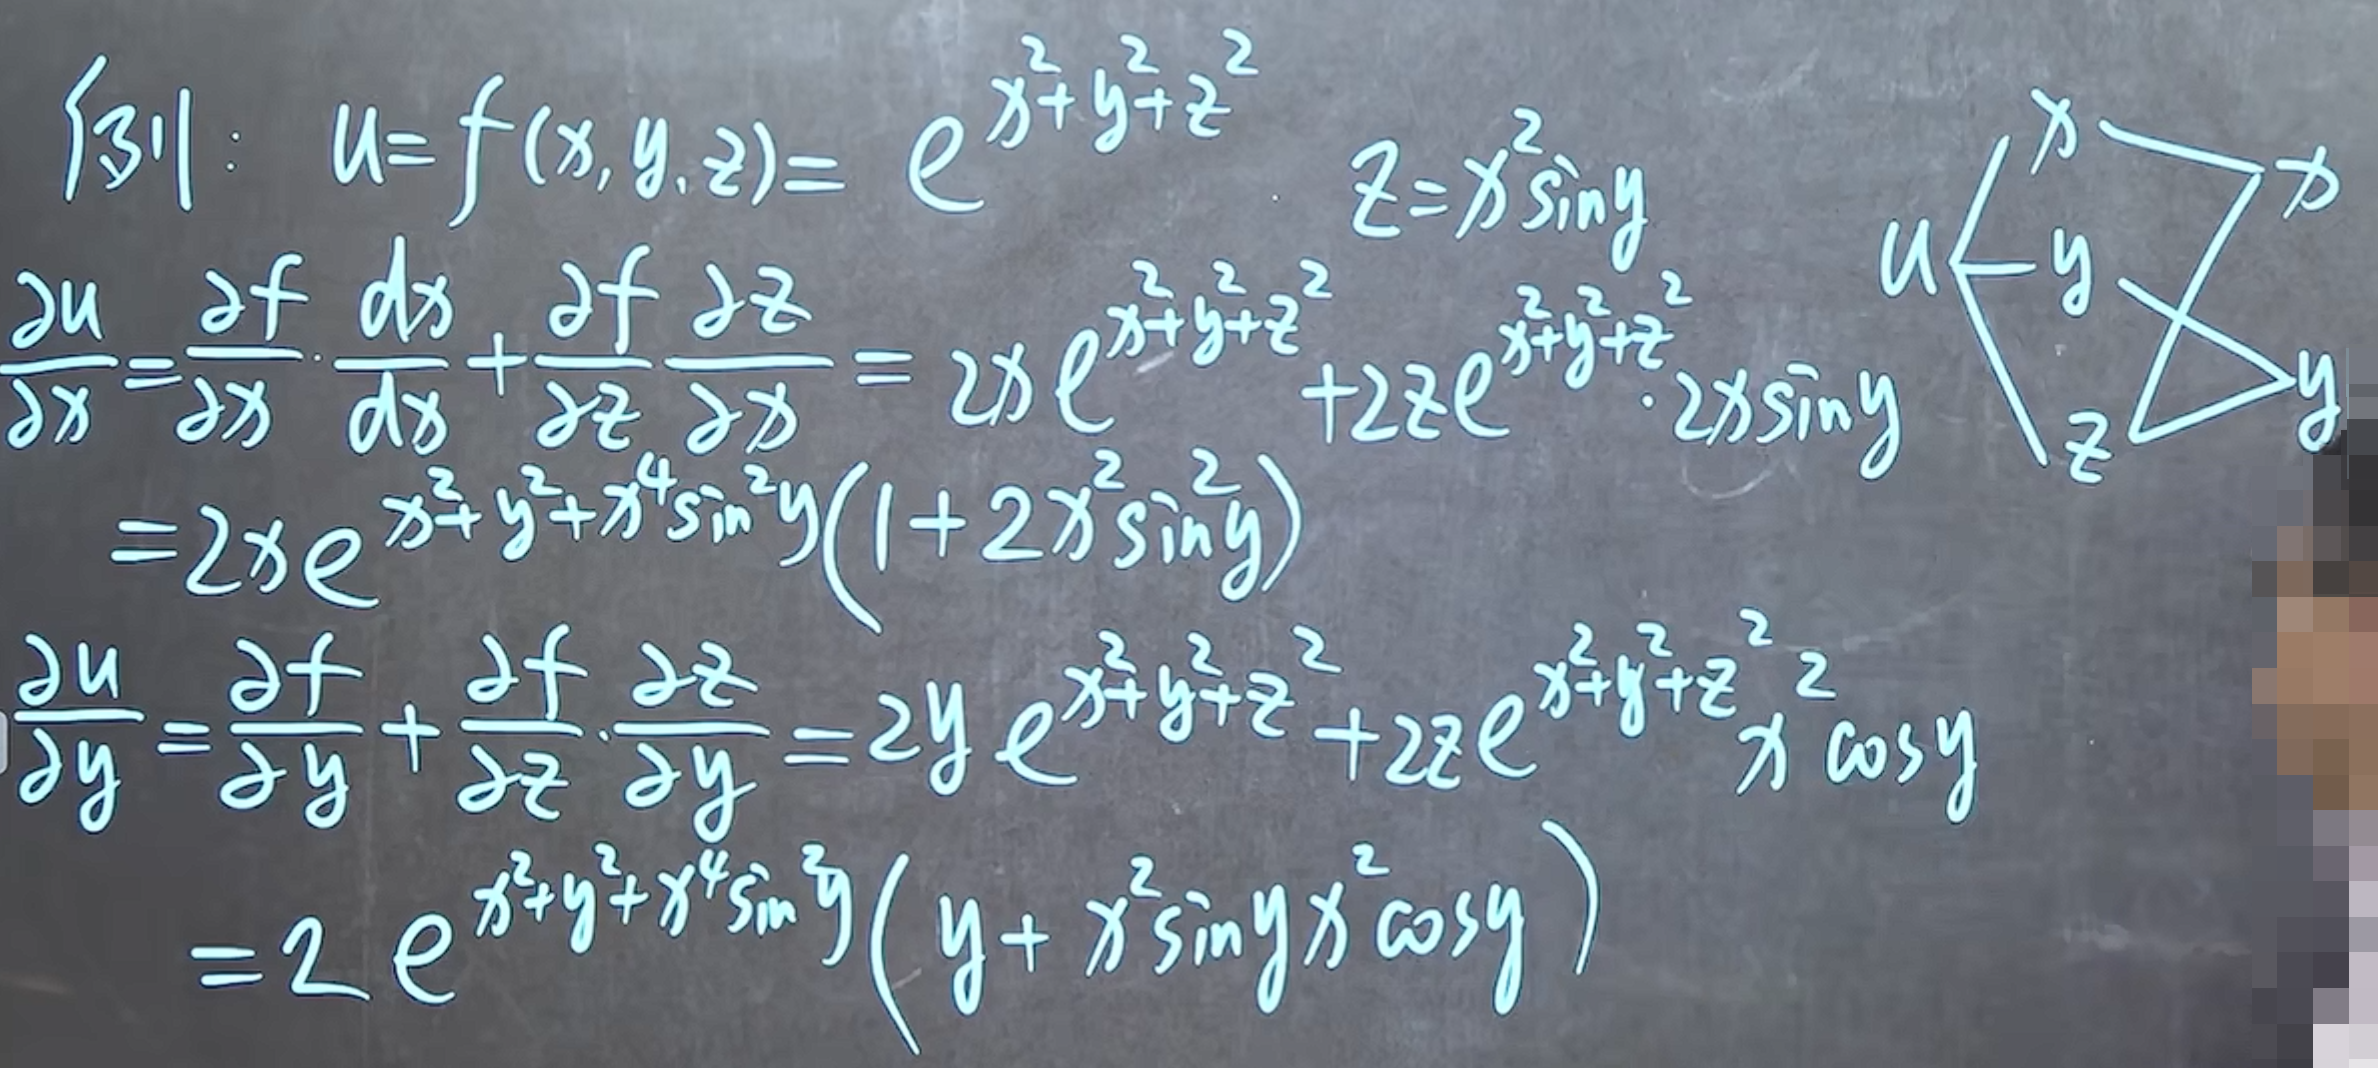 例: u=f(x,y,z)= e^{x²+y²+z²} z=x²siny
∂u/∂x = ∂f/∂x · dx/dx + ∂f/∂z ∂z/∂x = 2xe^{x²+y²+z²} +2ze^{x²+y²+z²} · 2xsiny
=2xe^{x²+y²+x⁴sin²y}(1+2x²sin²y)
∂u/∂y = ∂f/∂y + ∂f/∂z · ∂z/∂y =2ye^{x²+y²+z²} +2ze^{x²+y²+z²} x²cosy
=2e^{x²+y²+x⁴sin²y}(y+x²sinyx²cosy)
u
x
y
z
x
y